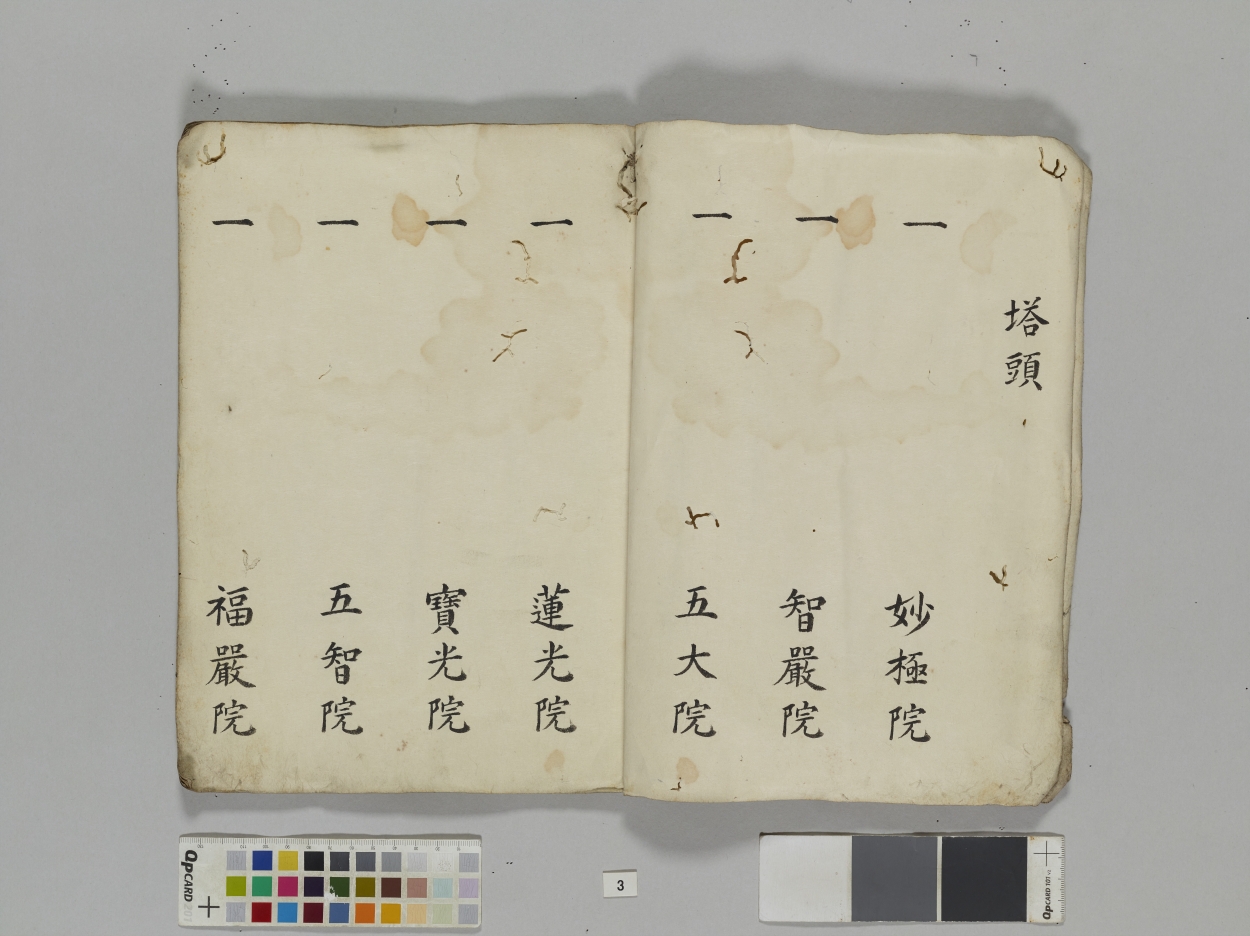 塔頭
一 妙極院
一 智嚴院
一 五大院
一 蓮光院
一 寶光院
一 五智院
一 福嚴院
3
QPCARD 201
QPCARD 101